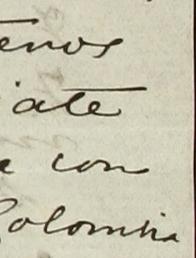 enos
ate
a con
Colombia